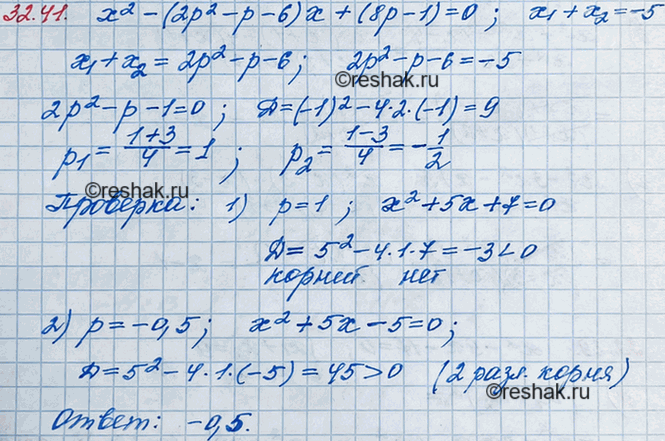 32.41. x² - (2p² - p - 6)x + (8p - 1) = 0 ; x₁ + x₂ = -5
x₁ + x₂ = 2p² - p - 6 ; 2p² - p - 6 = -5
©reshak.ru
2p² - p - 1 = 0 ; Д = (-1)² - 4·2·(-1) = 9
p₁ = (1+3)/4 = 1 ; p₂ = (1-3)/4 = -1/2
©reshak.ru
Проверка: 1) p = 1 ; x² + 5x + 7 = 0
Д = 5² - 4·1·7 = -3 < 0
корней нет
2) p = -0,5 ; x² + 5x - 5 = 0 ;
Д = 5² - 4·1·(-5) = 45 > 0 (2 разл. корня)
©reshak.ru
Ответ: -0,5.